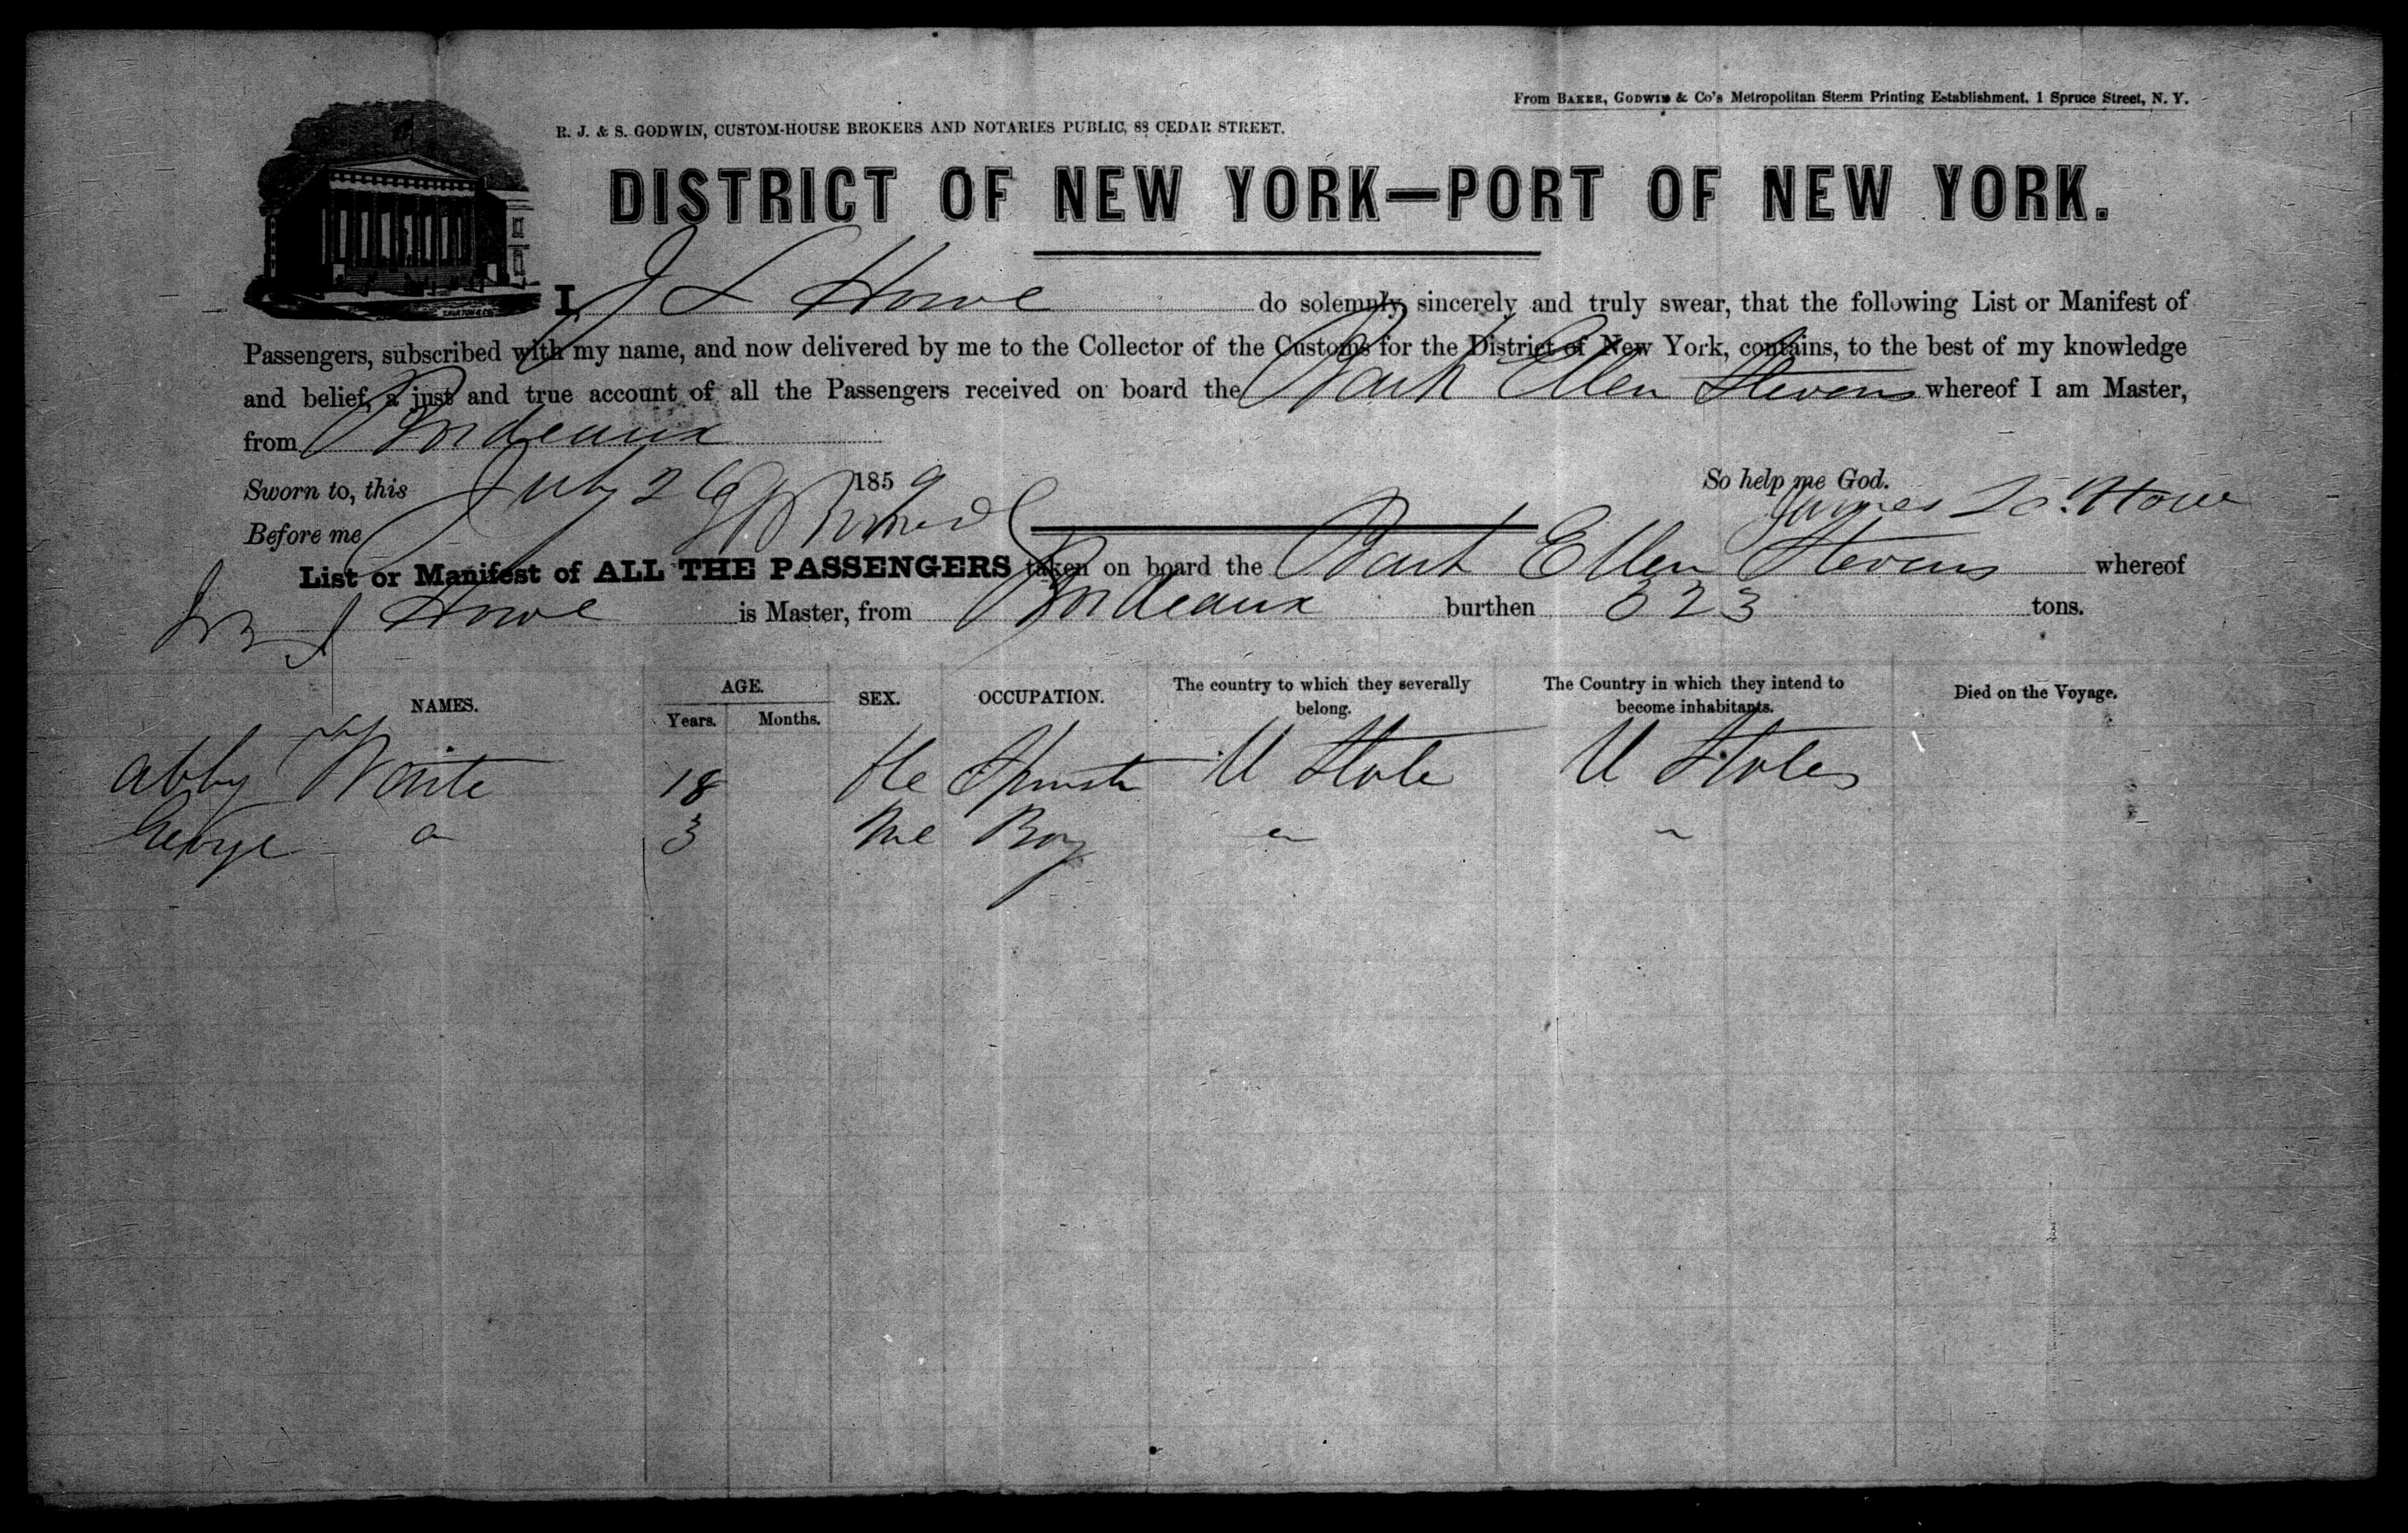 From BAKER, GODWIN & Co's Metropolitan Steam Printing Establishment, 1 Spruce Street, N. Y.
R. J. & S. GODWIN, CUSTOM-HOUSE BROKERS AND NOTARIES PUBLIC, 88 CEDAR STREET.
DISTRICT OF NEW YORK—PORT OF NEW YORK.
I, J L Howe do solemnly, sincerely and truly swear, that the following List or Manifest of
Passengers, subscribed with my name, and now delivered by me to the Collector of the Customs for the District of New York, contains, to the best of my knowledge
and belief, a just and true account of all the Passengers received on board the Bark Ellen Stevens whereof I am Master,
from Bordeaux
Sworn to, this July 26 1859 So help me God.
Before me James Howe
List or Manifest of ALL THE PASSENGERS taken on board the Bark Ellen Stevens whereof
Howe is Master, from Bordeaux burthen 323 tons.
NAMES. AGE. Years. Months. SEX. OCCUPATION. The country to which they severally belong. The Country in which they intend to become inhabitants. Died on the Voyage.
Abby 18 Fle U State U States
George 3 Me Boy